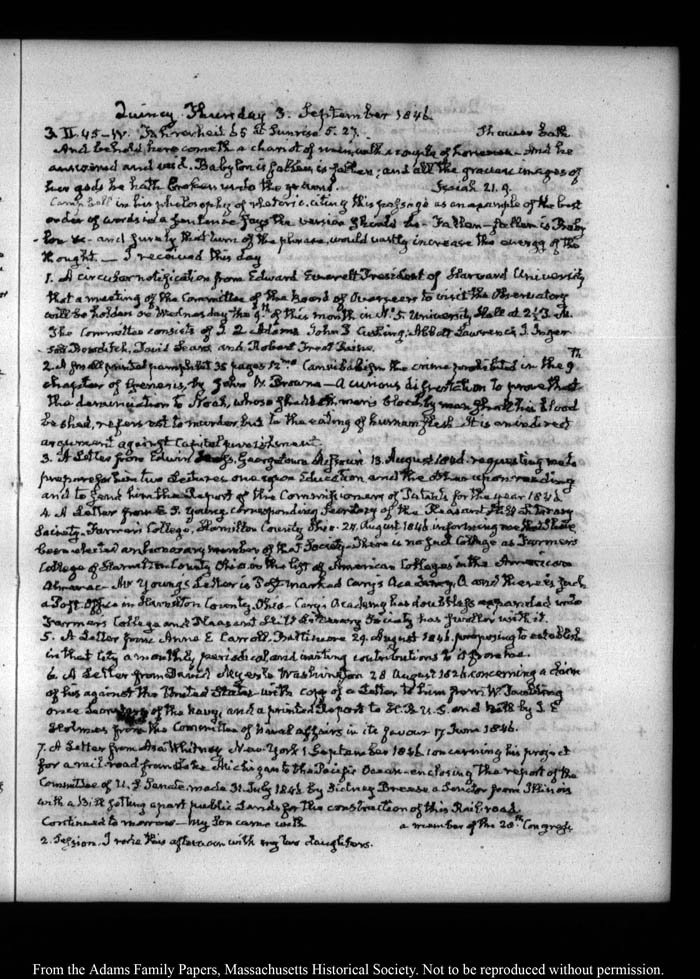 Quincy Thursday 3. September 1846.
3. II. 45 — IV. Fahrenheit 65 at Sunrise 5.27. Shower bath
And behold here cometh a chariot of men, with a couple of horsemen. And he
answered and said. Babylon is fallen is fallen; and all the graven images of
her gods he hath broken unto the ground. Isaiah 21.9.
Campbell in his philosophy of rhetoric, citing this passage as an example of the best
order of words in a sentence says the version should be — Fallen — fallen is Baby
lon &c — and surely that turn of the phrase, would vastly increase the energy of the
thought. — I received this day
1. A circular notification from Edward Everett President of Harvard University
that a meeting of the Committee of the board of Overseers to visit the Observatory
will be holden on Wednesday the 9th of this month in N. 5 University Hall at 2½ P.M.
The Committee consists of J. Q. Adams John P. Cushing, Abbott Lawrence, J. Inger
soll Bowditch, David Sears, and Robert Treat Paine.
2. A small printed pamphlet 35 pages 12mo Cannibalism the crime prohibited in the 9th
chapter of Genesis, by John W. Browne — A curious dissertation to prove that
the denunciation to Noah, whoso sheddeth man's blood by man shall his blood
be shed, refers not to murder but to the eating of human flesh. It is an indirect
argument against Capital punishment.
3. A Letter from Edwin Georgetown Missouri 13. August 1846 requesting me to
prepare for him two Lectures one upon Education and the other upon reading
and to send him the Report of the Commissioner of Patents for the year 1846
4. A Letter from E. S. Young, corresponding Secretary of the Pleasant Hill Literary
Society — Farmers College, Hamilton County Ohio. 24. August 1846 informing me that I have
been elected an honorary member of that Society. There is no such College as Farmers
College of Hamilton County Ohio, on the list of American Colleges in the American
Almanac — Mr Youngs Letter is Post marked Cary's Academy, O. and there is such
a Post Office in Hamilton County, Ohio — Cary's Academy has doubtless expanded into
Farmers College and Pleasant Hill Literary Society has swollen with it.
5. A Letter from Anne E. Carroll, Baltimore 29. August 1846. proposing to establish
in that City a monthly periodical and inviting contributions to it from me.
6. A Letter from David Myerle Washington 28 August 1846 concerning a claim
of his against the United States with copy of a Letter to him from W. Paulding
once Secretary of the Navy, and a printed Report to H.R. U.S. and bill by I. E.
Holmes from the Committee of Naval affairs in its favour 17 June 1846.
7. A Letter from Asa Whitney New-York 1 September 1846 concerning his project
for a railroad from Lake Michigan to the Pacific Ocean — enclosing the report of the
Committee of U.S. Senate made 31. July 1846 by Sidney Breese a Senator from Illinois
with a Bill setting apart public Lands for the construction of this Rail road
Continued to morrow — My Son came with a member of the 28th Congress
2. Session. I rode this afternoon with my two daughters.
From the Adams Family Papers, Massachusetts Historical Society. Not to be reproduced without permission.